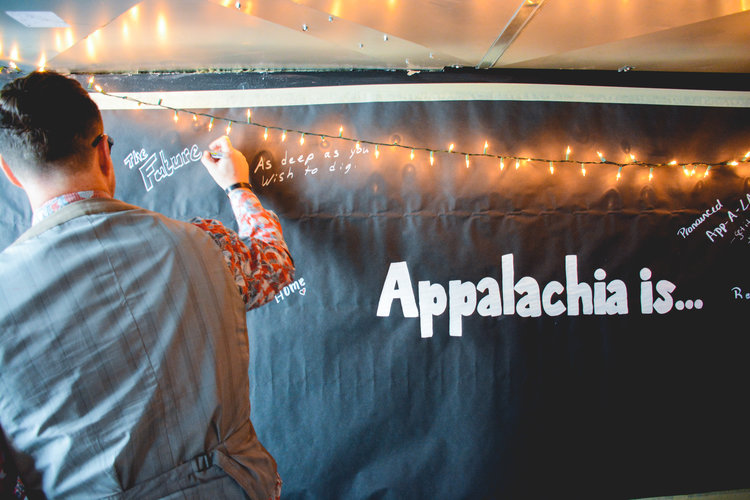 The
Future
As deep as you
wish to dig.
Home
Appalachia is...
Pronounced